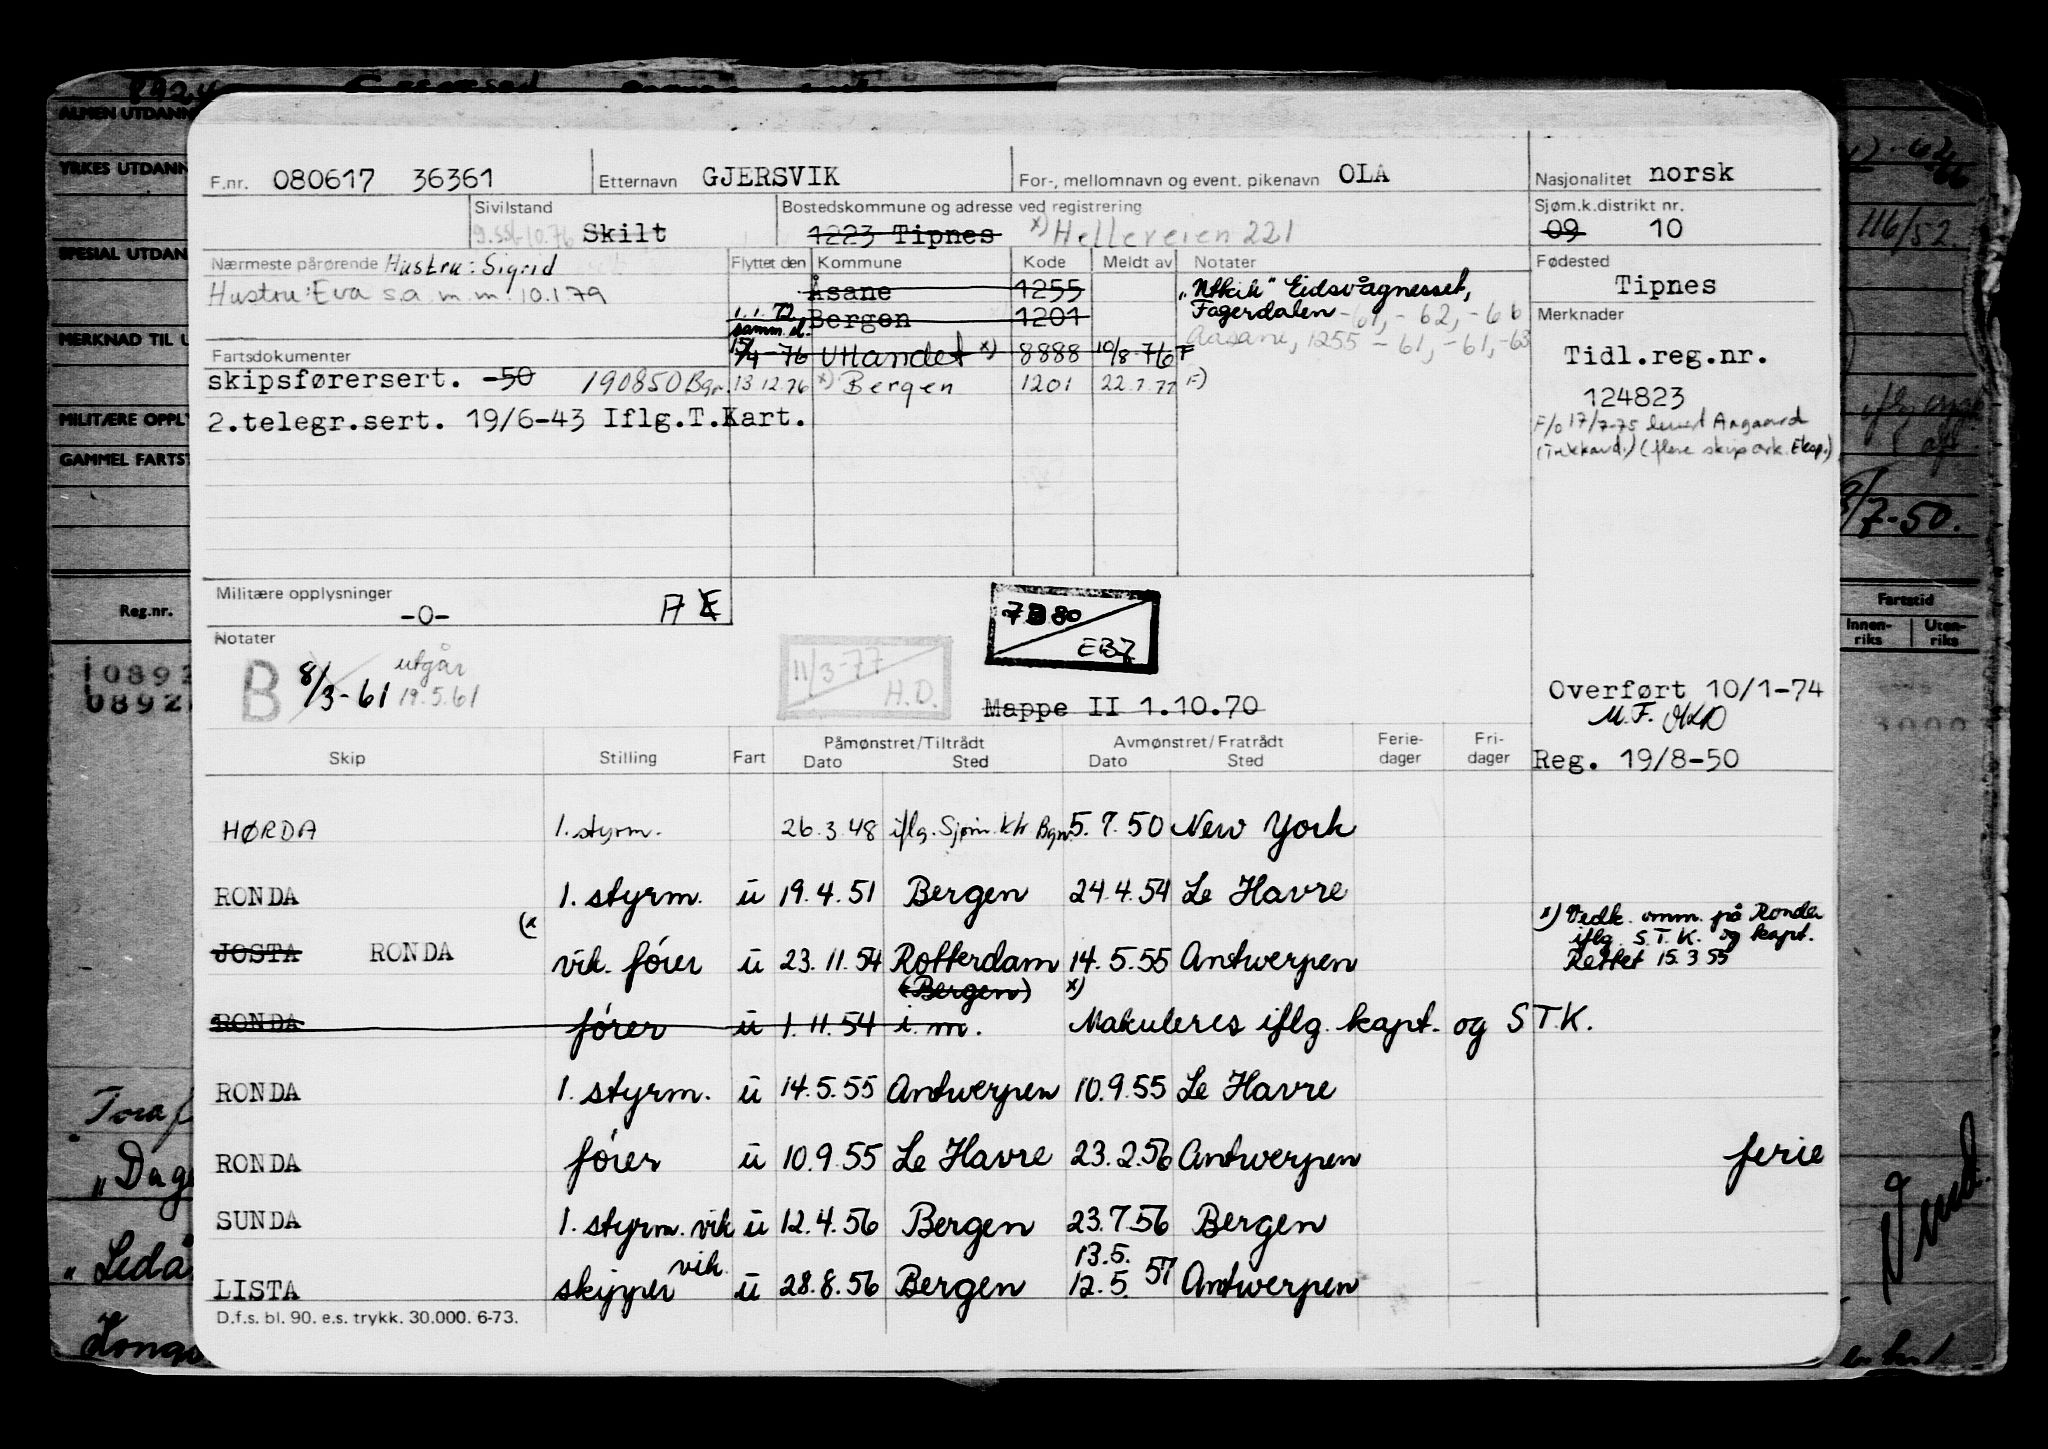 F.nr. 080617 36361 Etternavn GJERSVIK For-, mellomnavn og event. pikenavn OLA Nasjonalitet norsk
Sivilstand Skilt Bostedskommune og adresse ved registrering 1223 Tipnes x) Helleveien 221 Sjøm.k.distrikt nr. 09 10
Nærmeste pårørende Hustru: Sigrid Flyttet den Kommune Kode Meldt av Notater Fødested
Hustru: Eva s.a.m.m. 10.1.79 Åsane 1255 "Utkik" Eidsvågnesset, Tipnes
1.1.72 Bergen 1201 Fagerdalen -61, -62, -66 Merknader
samm.sl. Aasane, 1255 -61, -61, -63
Fartsdokumenter 15/4-76 Utlandet x) 8888 10/8-76 F Tidl.reg.nr.
skipsførersert. -50 190850 Bgn. 13.12.76 x) Bergen 1201 22.7.77 F) 124823
2.telegr.sert. 19/6-43 Iflg.T.Kart. F/o 17/7-75 Aagaard
(flere skip ork. Eksp.)
Militære opplysninger -0- A E
7 80
EBJ
Notater
B 8/3-61 utgår 19.5.61
11/3-77 H.D.
Mappe II 1.10.70
Overført 10/1-74
M.F.
Reg. 19/8-50
Skip Stilling Fart Påmønstret/Tiltrådt Dato Sted Avmønstret/Fratrådt Dato Sted Ferie-dager Fri-dager
HØRDA 1. styrm. 26.3.48 iflg. Sjøm.ktr Bgn 5.7.50 New York
RONDA 1. styrm. u 19.4.51 Bergen 24.4.54 Le Havre
JOSTA RONDA (x vik. fører u 23.11.54 Rotterdam 14.5.55 Antwerpen
(Bergen) x)
x) Vedk. omm. på Ronda
iflg. S.T.K. og kapt.
Rettet 15.3.55
RONDA fører u 1.11.54 i.m. Makuleres iflg. kapt. og S.T.K.
RONDA 1. styrm. u 14.5.55 Antwerpen 10.9.55 Le Havre
RONDA fører u 10.9.55 Le Havre 23.2.56 Antwerpen ferie
SUNDA 1. styrm. vik u 12.4.56 Bergen 23.7.56 Bergen
LISTA skipper vik. u 28.8.56 Bergen 13.5. 12.5. 57 Antwerpen
D.f.s. bl. 90. e.s. trykk. 30.000. 6-73.
ALMEN UTDANN
YRKES UTDANN
SPESIAL UTDAN
MERKNAD TIL U
MILITÆRE OPPLY
GAMMEL FARTST
Reg.nr.
"Dag
"Ledå
116/52
7-50.
Fartstid
Innen-riks Uten-riks